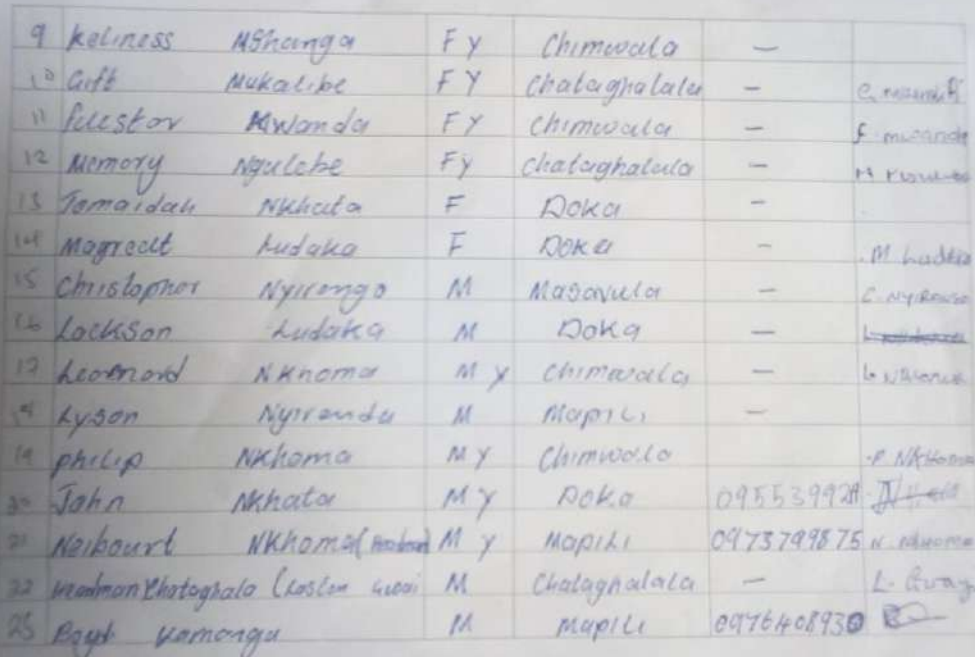 9 Keliness Mshanga F Y Chimwala —
10 Gift Mukalibe F Y Chataghalala —
11 Mwanda F Y Chimwala — F. mwanda
12 Memory Ngulube F Y Chataghalala —
13 Tamaidah Nkhata F Doka —
14 Magreatt Ludaka F Doka — M Ludaka
15 Christopher Nyirongo M Masavula — C. Nyirongo
16 Lockson Ludaka M Doka —
17 Leornard NKhoma M Y Chimwala —
Lyson Nyirenda M Mapili —
19 philip NKhoma M Y Chimwala P. NKHoma
20 John Nkhata M Y Doka
21 Neibourt NKhoma M Y Mapili 0973799875 N. NKhoma
22 Headman Chataghala M Chataghalala —
23 Kamanga M Mapili